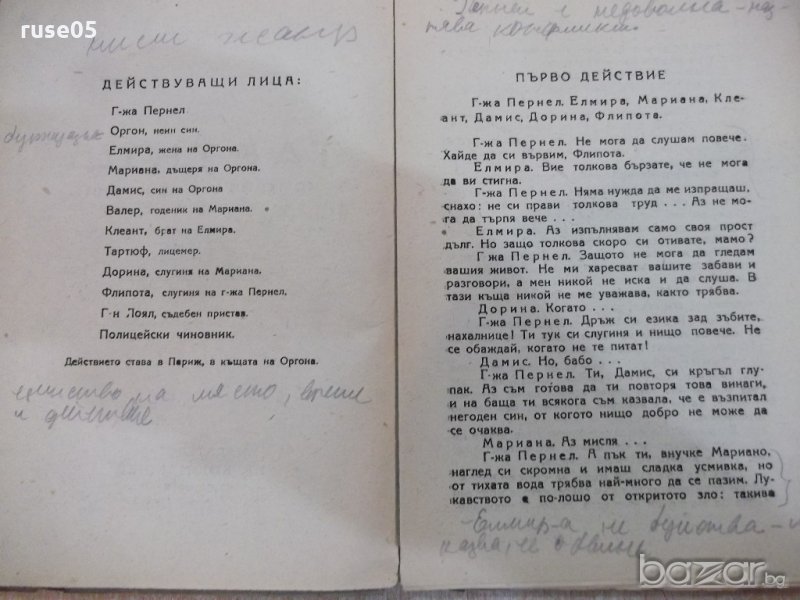 ruse05
ДЕЙСТВУВАЩИ ЛИЦА:
Г-жа Пернел
Оргон, неин син.
Елмира, жена на Оргона.
Мариана, дъщеря на Оргона.
Дамис, син на Оргона
Валер, годеник на Мариана.
Клеант, брат на Елмира.
Тартюф, лицемер.
Дорина, слугиня на Мариана.
Флипота, слугиня на г-жа Пернел.
Г-н Лоял, съдебен пристав.
Полицейски чиновник.
Действието става в Париж, в къщата на Оргона.
единство на място, време
и действие
недоволна
ПЪРВО ДЕЙСТВИЕ
Г-жа Пернел. Елмира, Мариана, Кле-
ант, Дамис, Дорина, Флипота.
Г-жа Пернел. Не мога да слушам повече.
Хайде да си вървим, Флипота.
Елмира. Вие толкова бързате, че не мога
да ви стигна.
Г-жа Пернел. Няма нужда да ме изпращаш,
снахо: не си прави толкова труд . . . Аз не мо-
га да търпя вече . . .
Елмира. Аз изпълнявам само своя прост
дълг. Но защо толкова скоро си отивате, мамо?
Г жа Пернел. Защото не мога да гледам
вашия живот. Не ми харесват вашите забави и
разговори, а мен никой не иска и да слуша. В
тази къща никой не ме уважава, както трябва.
Дорина. Когато . . .
Г-жа Пернел. Дръж си езика зад зъбите,
нахалнице! Ти тук си слугиня и нищо повече. Не
се обаждай, когато не те питат!
Дамис. Но, бабо . . .
Г-жа Пернел. Ти, Дамис, си кръгъл глу-
пак. Аз съм готова да ти повторя това винаги,
и на баща ти всякога съм казвала, че е възпитал
негоден син, от когото нищо добро не може да
се очаква.
Мариана. Аз мисля . . .
Г-жа Пернел. А пък ти, внучке Мариано,
наглед си скромна и имаш сладка усмивка, но
от тихата вода трябва най-много да се пазим. Лу-
кавството е по-лошо от откритото зло: такива
bazar.bg